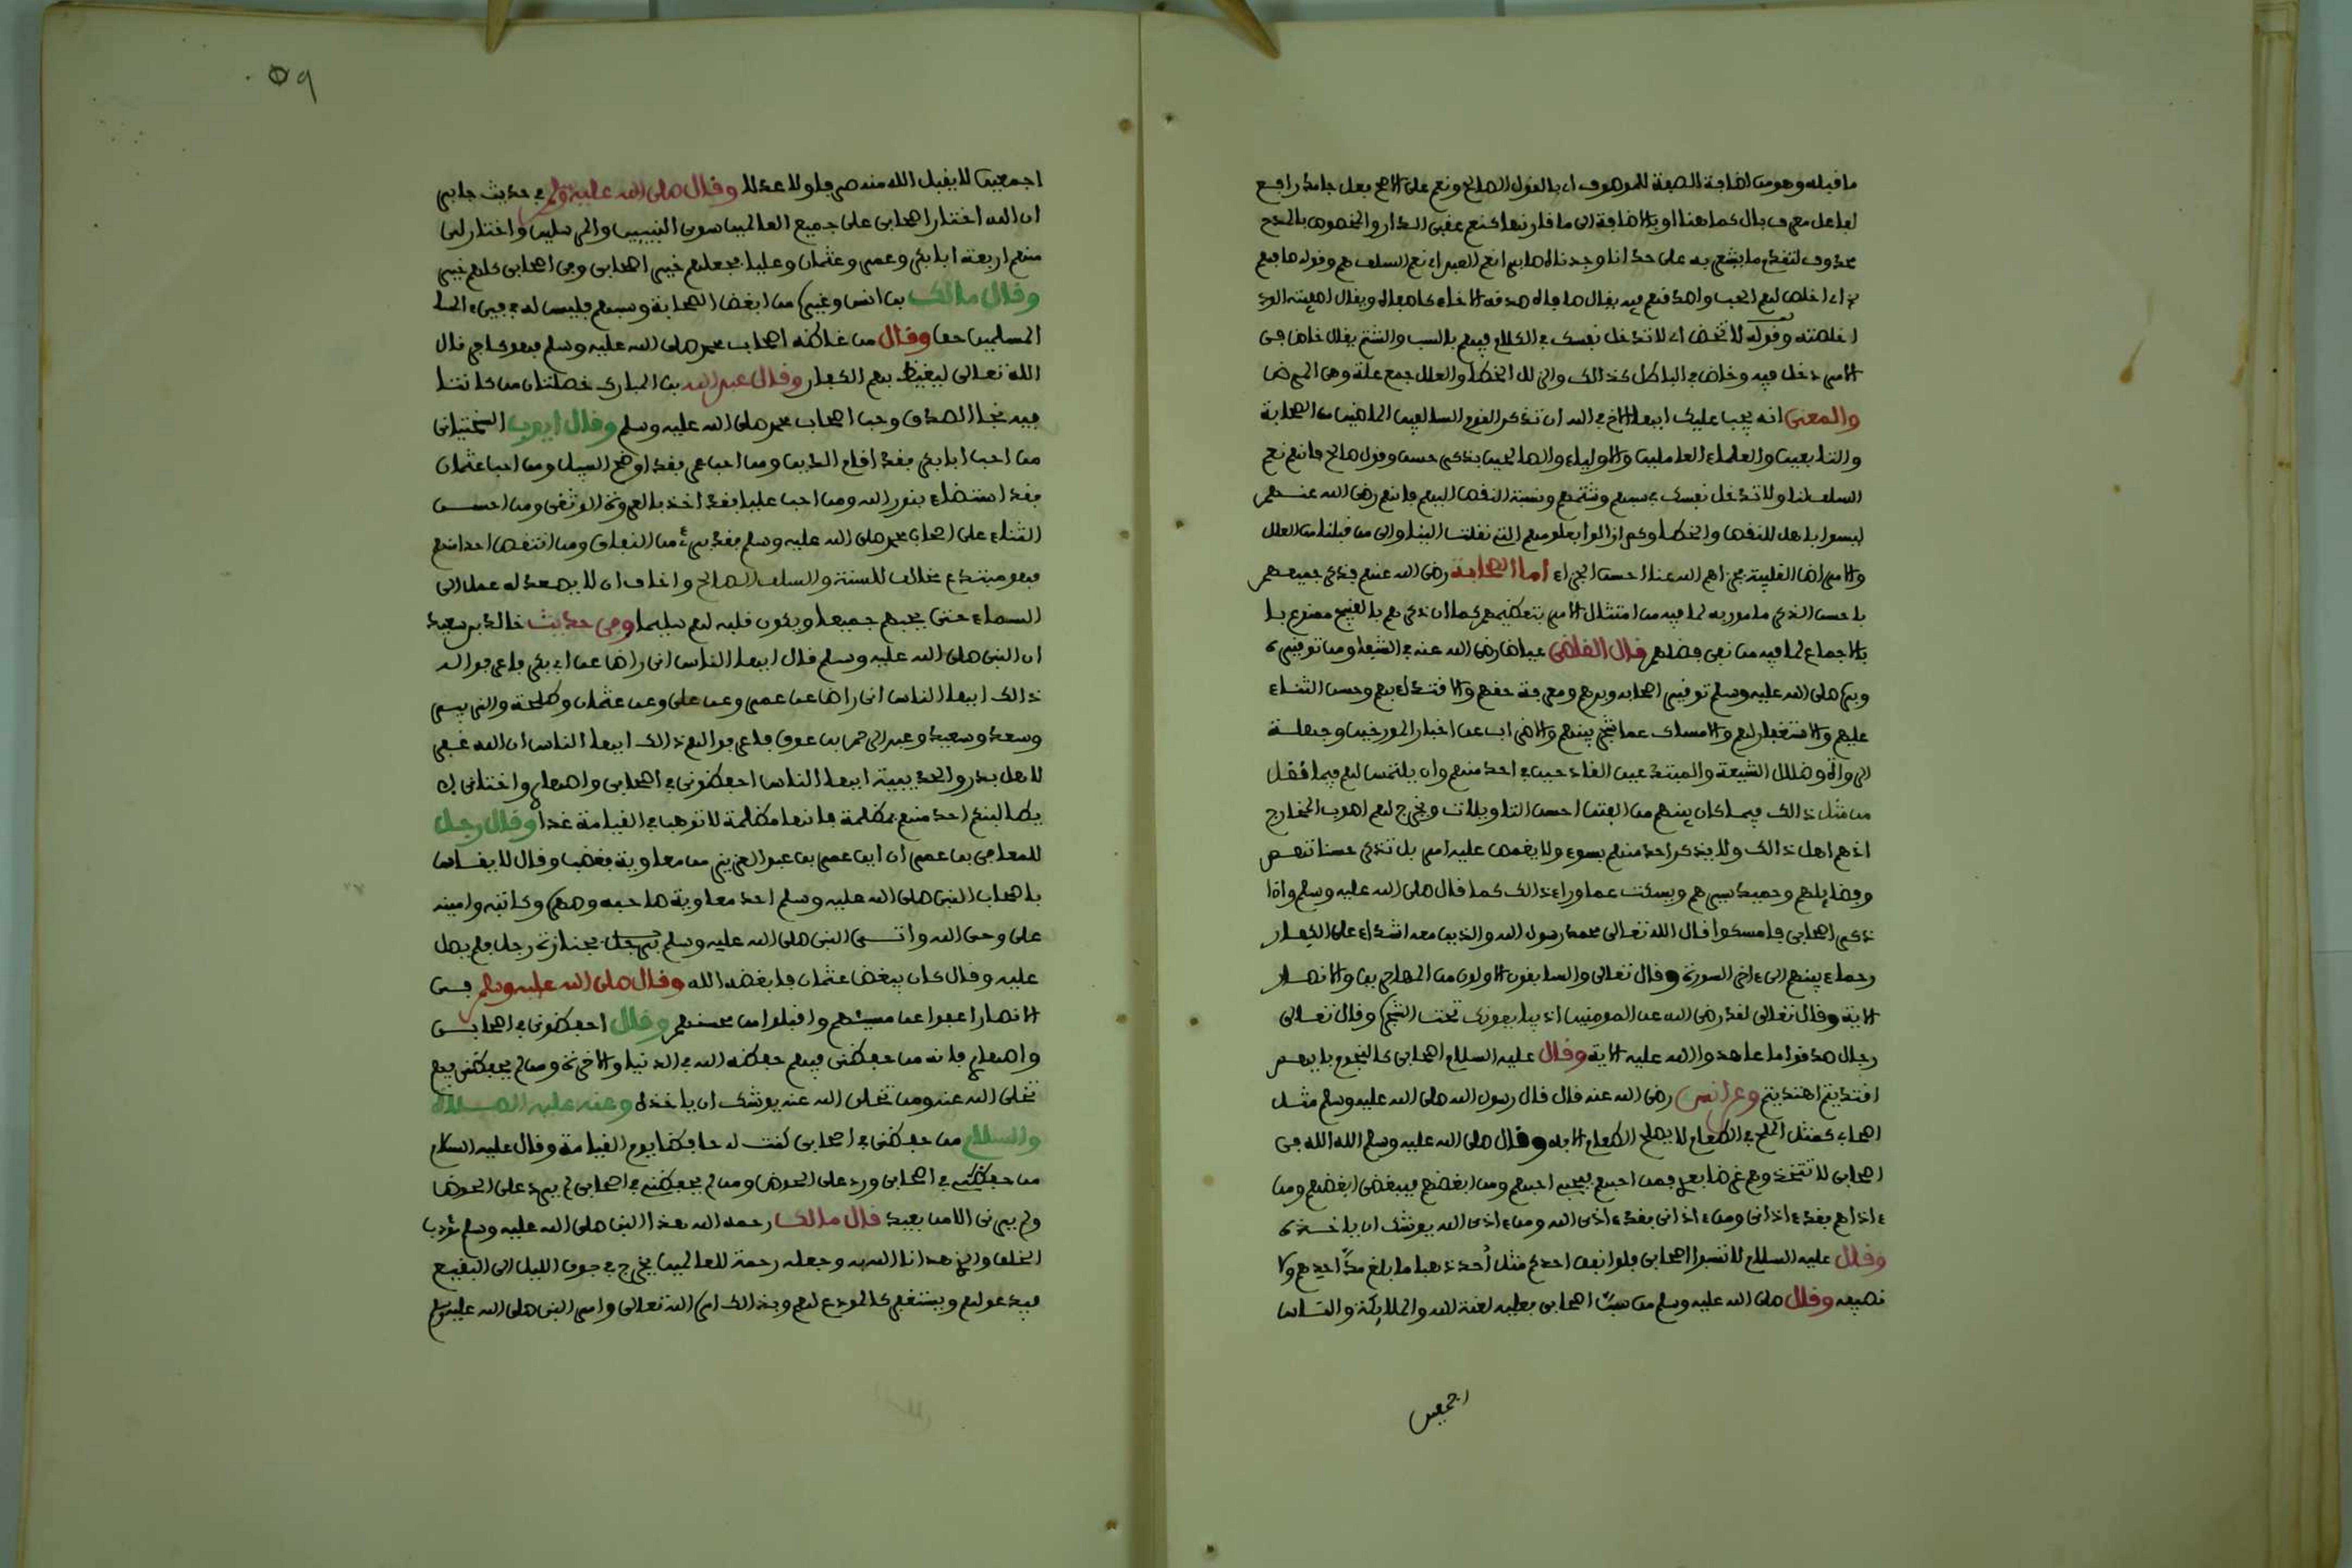 ما قبله وهو من اضافة الصفة للموصوف اي بالقول الصالح ونعم على الاصح فعل جامد رافع
لفاعل معرف بال كما هنا او بالاضافة الى ما قارنها كنعم عقبى الدار والمخصوص بالمدح
محذوف لتقدم ما يشعر به على حد انا وجدناه صابرا نعم العبد اي نعم السلف هم وقوله صافهم
اي اخلص لهم الحب واصدقهم فيه يقال صافاه صدقه الاخاء كاصفاه ويقال اصفيته الود
اخلصته وقوله لا تخض اي لا تدخل نفسك في الكلام فيهم بالسب والشتم يقال خاض في
الامر دخل فيه وخاض في الباطل كذالك والزلل الخطا والعلل جمع علة وهي المرض
والمعنى انه يجب عليك ايها الاخ في الله ان تذكر القوم السالفين الماضين من الصحابة
والتابعين والعلماء العاملين والاولياء والصالحين بذكر حسن وقول صالح فانهم نعم
السلف لنا ولا تدخل نفسك في سبهم وشتمهم ونسبة النقص اليهم فانهم رضي الله عنهم
ليسوا باهل للنقص والخطا وكم ازالوا بعلومهم التي نقلت الينا والى من قبلنا من العلل
والامراض القلبية فجزاهم الله عنا احسن الجزاء اما الصحابة رضي الله عنهم فذكر جميعهم
باحسن الذكر مامور به لما فيه من امتثال الامر بتعظيمهم كما ان ذكرهم بالقبيح ممنوع با
بالاجماع لما فيه من نفي فضلهم قال القاضي عياض رضي الله عنه في الشفا ومن توقيره
وبره صلى الله عليه وسلم توقير اصحابه وبرهم ومعرفة حقهم والاقتداء بهم وحسن الثناء
عليهم والاستغفار لهم والامساك عما شجر بينهم والاضراب عن اخبار المورخين وجهلة
الرواة وضلال الشيعة والمبتدعين القادحين في احد منهم وان يلتمس لهم فيما نقل
من مثل ذالك فيما كان بينهم من الفتن احسن التاويلات ويخرج لهم اصوب المخارج
اذ هم اهل ذالك ولا يذكر احد منهم بسوء ولا يغمص عليه امر بل تذكر حسناتهم
وفضايلهم وحميد سيرهم ويسكت عما وراء ذالك كما قال صلى الله عليه وسلم واذا
ذكر اصحابي فامسكوا قال الله تعالى محمد رسول الله والذين معه اشداء على الكفار
رحماء بينهم الى ءاخر السورة وقال تعالى والسابقون الاولون من المهاجرين والانصار
الاية وقال تعالى لقد رضي الله عن المومنين اذ يبايعونك تحت الشجرة وقال تعالى
رجال صدقوا ما عاهدوا الله عليه الاية وقال عليه السلام اصحابي كالنجوم بايهم
اقتديتم اهتديتم وعن انس رضي الله عنه قال قال رسول الله صلى الله عليه وسلم مثل
اصحابي كمثل الملح في الطعام لا يصلح الطعام الا به وقال صلى الله عليه وسلم الله الله في
اصحابي لا تتخذوهم غرضا بعدي فمن احبهم فبحبي احبهم ومن ابغضهم فببغضي ابغضهم ومن
ءاذاهم فقد ءاذاني ومن ءاذاني فقد ءاذى الله ومن ءاذى الله يوشك ان ياخذه
وقال عليه السلام لا تسبوا اصحابي فلو انفق احدكم مثل أحد ذهبا ما بلغ مدّ احدهم ولا
نصيفه وقال صلى الله عليه وسلم من سبّ اصحابي فعليه لعنة الله والملايكة والناس
اجمعين
٥٩
اجمعين لا يقبل الله منه صرفا ولا عدلا وقال صلى الله عليه وسلم في حديث جابر
ان الله اختار اصحابي على جميع العالمين سوى النبيين والمرسلين واختار لي
منهم اربعة ابا بكر وعمر وعثمان وعليا فجعلهم خير اصحابي وفي اصحابي كلهم خير
وقال مالك بن انس وغيره من ابغض الصحابة وسبهم فليس له في فيء الم
المسلمين حق وقال من غاظه اصحاب محمد صلى الله عليه وسلم فهو كافر قال
الله تعالى ليغيظ بهم الكفار وقال عبد الله بن المبارك خصلتان من كانتا
فيه نجا الصدق وحب اصحاب محمد صلى الله عليه وسلم وقال ايوب السختياني
من احب ابا بكر فقد اقام الدين ومن احب عمر فقد اوضح السبيل ومن احب عثمان
فقد استضاء بنور الله ومن احب عليا فقد اخذ بالعروة الوثقى ومن احسن
الثناء على اصحاب محمد صلى الله عليه وسلم فقد برئ من النفاق ومن انتقص احدا منهم
فهو مبتدع مخالف للسنة والسلف الصالح واخاف ان لا يصعد له عمل الى
السماء حتى يحبهم جميعا ويكون قلبه لهم سليما وفي حديث خالد بن سعيد
ان النبي صلى الله عليه وسلم قال ايها الناس اني راض عن ابي بكر فاعرفوا له
ذالك ايها الناس اني راض عن عمر وعن علي وعن عثمان وطلحة والزبير
وسعد وسعيد وعبد الرحمن بن عوف فاعرفوا لهم ذالك ايها الناس ان الله غفر
لاهل بدر والحديبية ايها الناس احفظوني في اصحابي واصهاري واختاني لا
يطالبنكم احد منهم بمظلمة فانها مظلمة لا توهب في القيامة غدا وقال رجل
للمعافى بن عمران اين عمر بن عبد العزيز من معاوية فغضب وقال لا يقاس
باصحاب النبي صلى الله عليه وسلم احد معاوية صاحبه وصهره وكاتبه وامينه
على وحي الله واتي النبي صلى الله عليه وسلم بجنازة رجل فلم يصل
عليه وقال كان يبغض عثمان فابغضه الله وقال صلى الله عليه وسلم في
الانصار اعفوا عن مسيئهم واقبلوا من محسنهم وقال احفظوني في اصحابي
واصهاري فانه من حفظني فيهم حفظه الله في الدنيا والاخرة ومن لم يحفظني فيهم
تخلى الله عنه ومن تخلى الله عنه يوشك ان ياخذه وعنه عليه الصلاة
والسلام من حفظني في اصحابي كنت له حافظا يوم القيامة وقال عليه السلام
من حفظني في اصحابي ورد على الحوض ومن لم يحفظني في اصحابي لم يرد على الحوض
ولم يرني الا من بعيد قال مالك رحمه الله هذا النبي صلى الله عليه وسلم مؤدب
الخلق الذي هدانا الله به وجعله رحمة للعالمين يخرج في جوف الليل الى البقيع
فيدعو لهم ويستغفر كالمودع لهم وبذالك امره الله تعالى وامر النبي صلى الله عليه وسلم